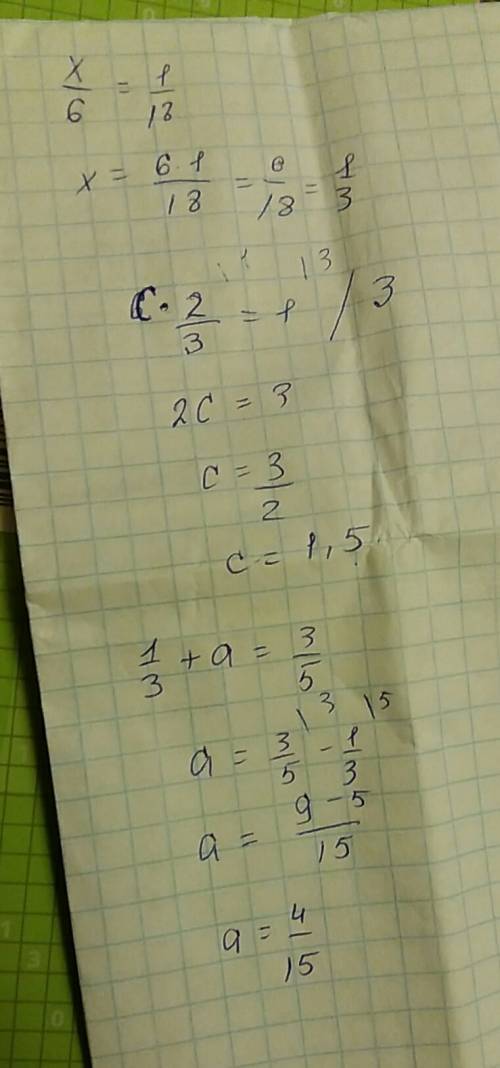 x/6 = 1/18
x = 6·1/18 = 6/18 = 1/3
c · 2/3 \1 = 1 \3 / 3
2c = 3
c = 3/2
c = 1,5
1/3 + a = 3/5
a = 3/5 \3 - 1/3 \5
a = 9-5/15
a = 4/15